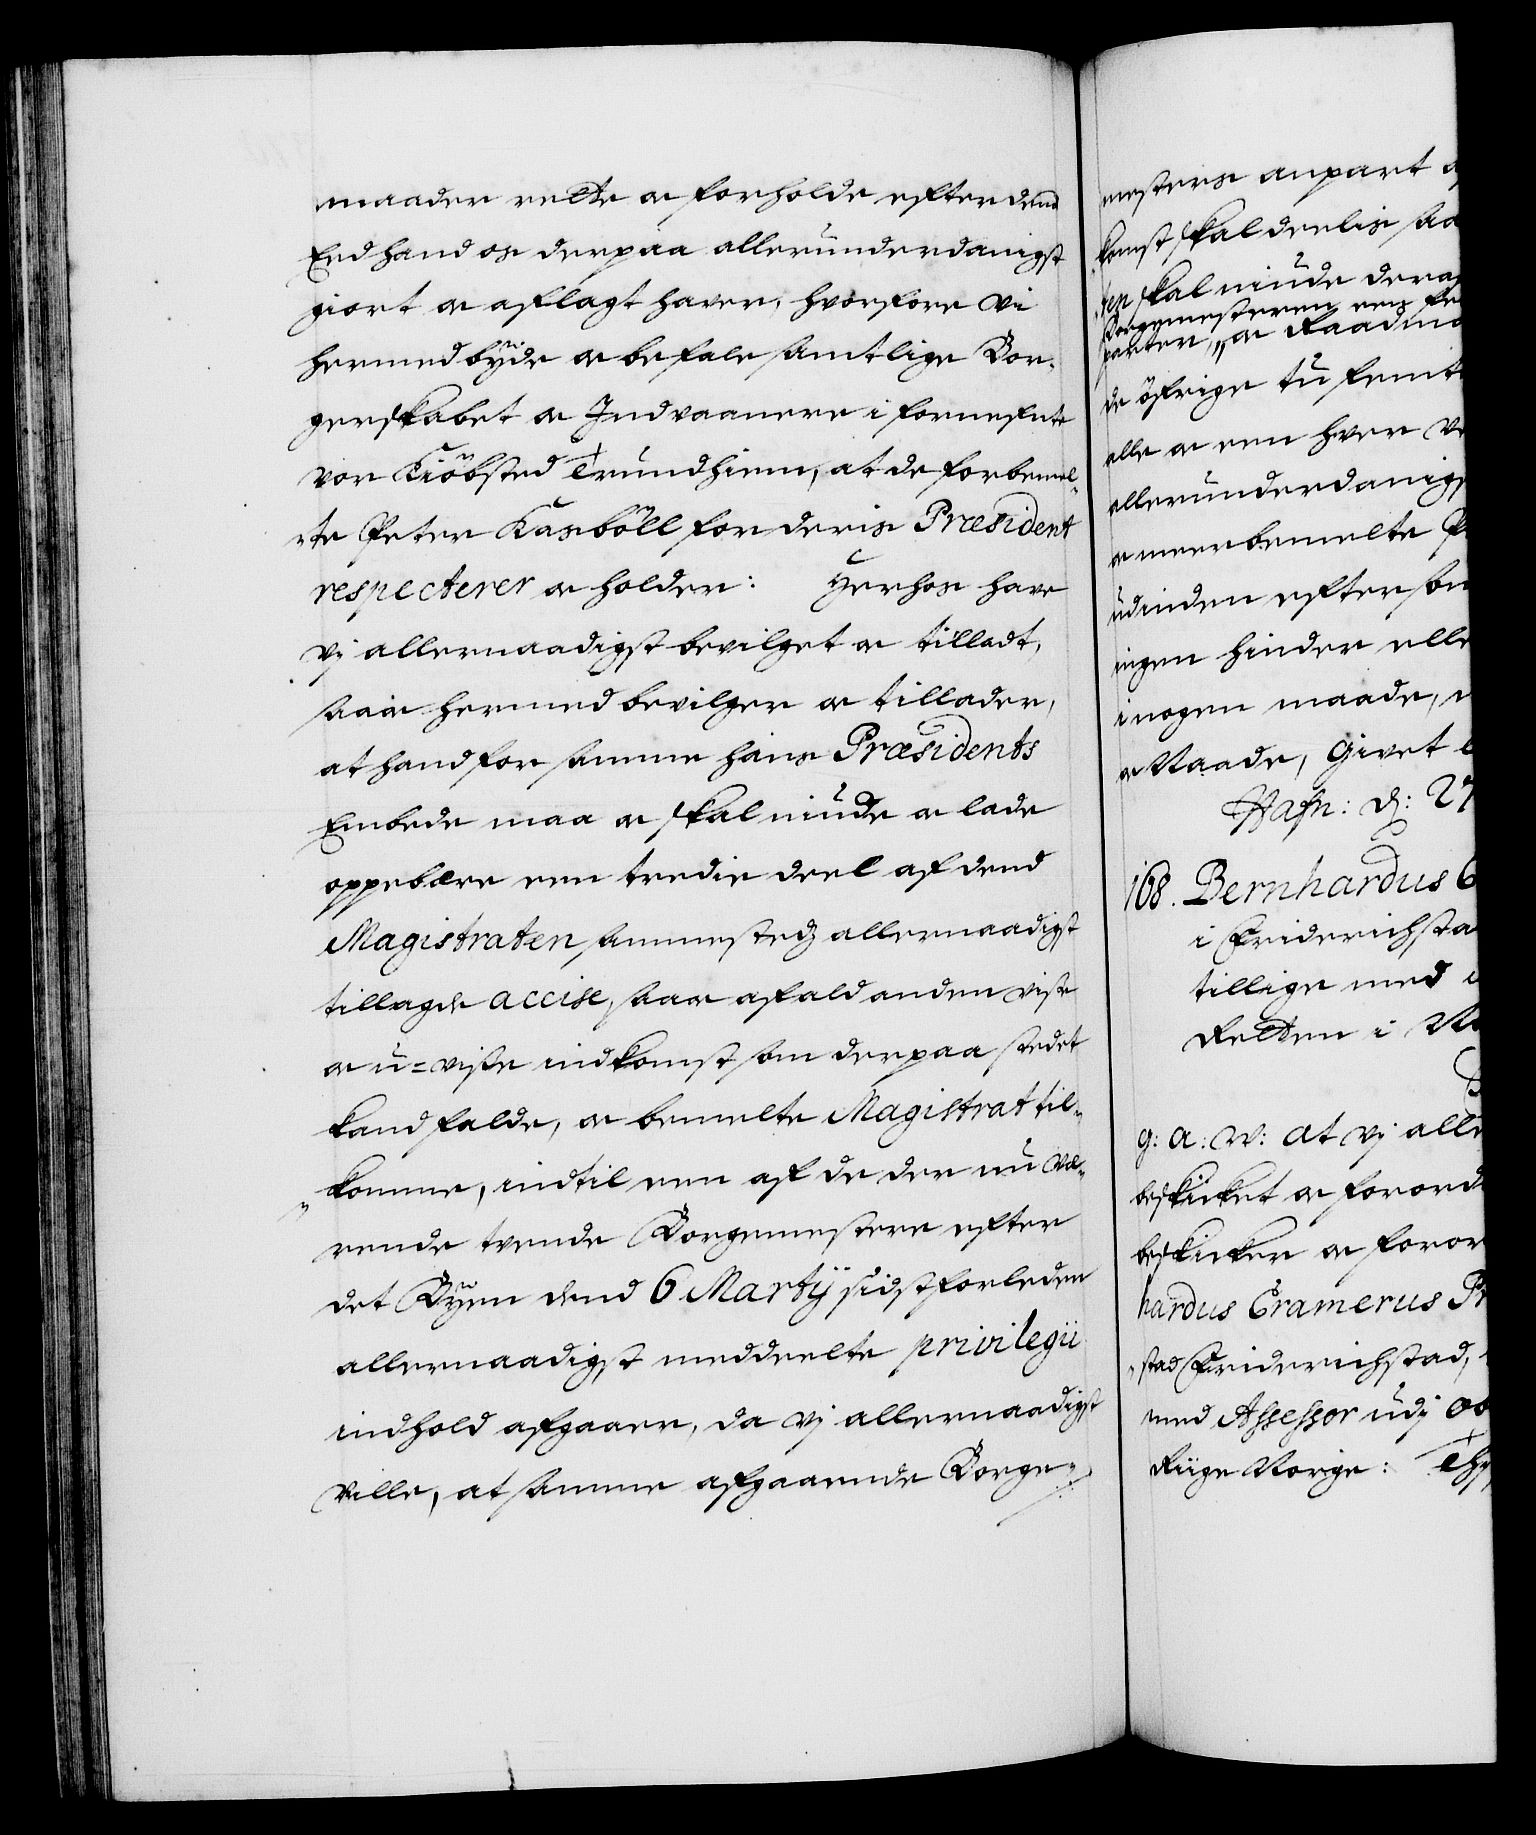 maader rette oc forholde efter dend
Eed hand os derpaa allerunderdanigst
giort oc aflagt haver, hvorfore vi
hermed byde oc befale samtlige Bor-
gerskabet oc Indvaanere i forneffnte
vor Kiöbsted Trundhiem, at de forbemel-
te Peter Kasböll for deris Præsident
respecterer oc holder: Herhos have
vj allernaadigst bevilget oc tilladt,
saa oc hermed bevilger oc tillader,
at hand for samme hans Præsidents
Embede maa oc skal niude oc lade
oppebære een tredie deel af dend
Magistraten sammestedz allernaadigst
tillagde accise, saa oc af ald anden viste
oc u=visse indkomst som der paa stedet
kand falde, oc bemelte Magistrat til-
komme, indtil een af de der nu væ-
rende tvende Borgemestere efter
det Byen dend 6 Martij sidstforleden
allernaadigst meddeelte privilegii
indhold afgaaer, da vj allernaadigst
ville, at samme afgaaende Borge-
mesters anpart a
komst skal deelis saa
ten skal niude deraf
Borgemesteren een fe
parter, oc Raadma
de öfrige tu femte
alle oc een hver ve
allerunderdanigs
oc meerbemelte P
udinden eftersom
ingen hinder elle
i nogen maade,
oc Naade, Givet
Hafn: d: 27
168. Bernhardus C
i Friderichsta
tillige med
Retten i No
g: a: w: at vj alle
beskicket oc forord
beskicker oc foror
hardus Cramerus Pr
stad Friderichstad,
med Assessor udj Ob
Riige Norge: Thj